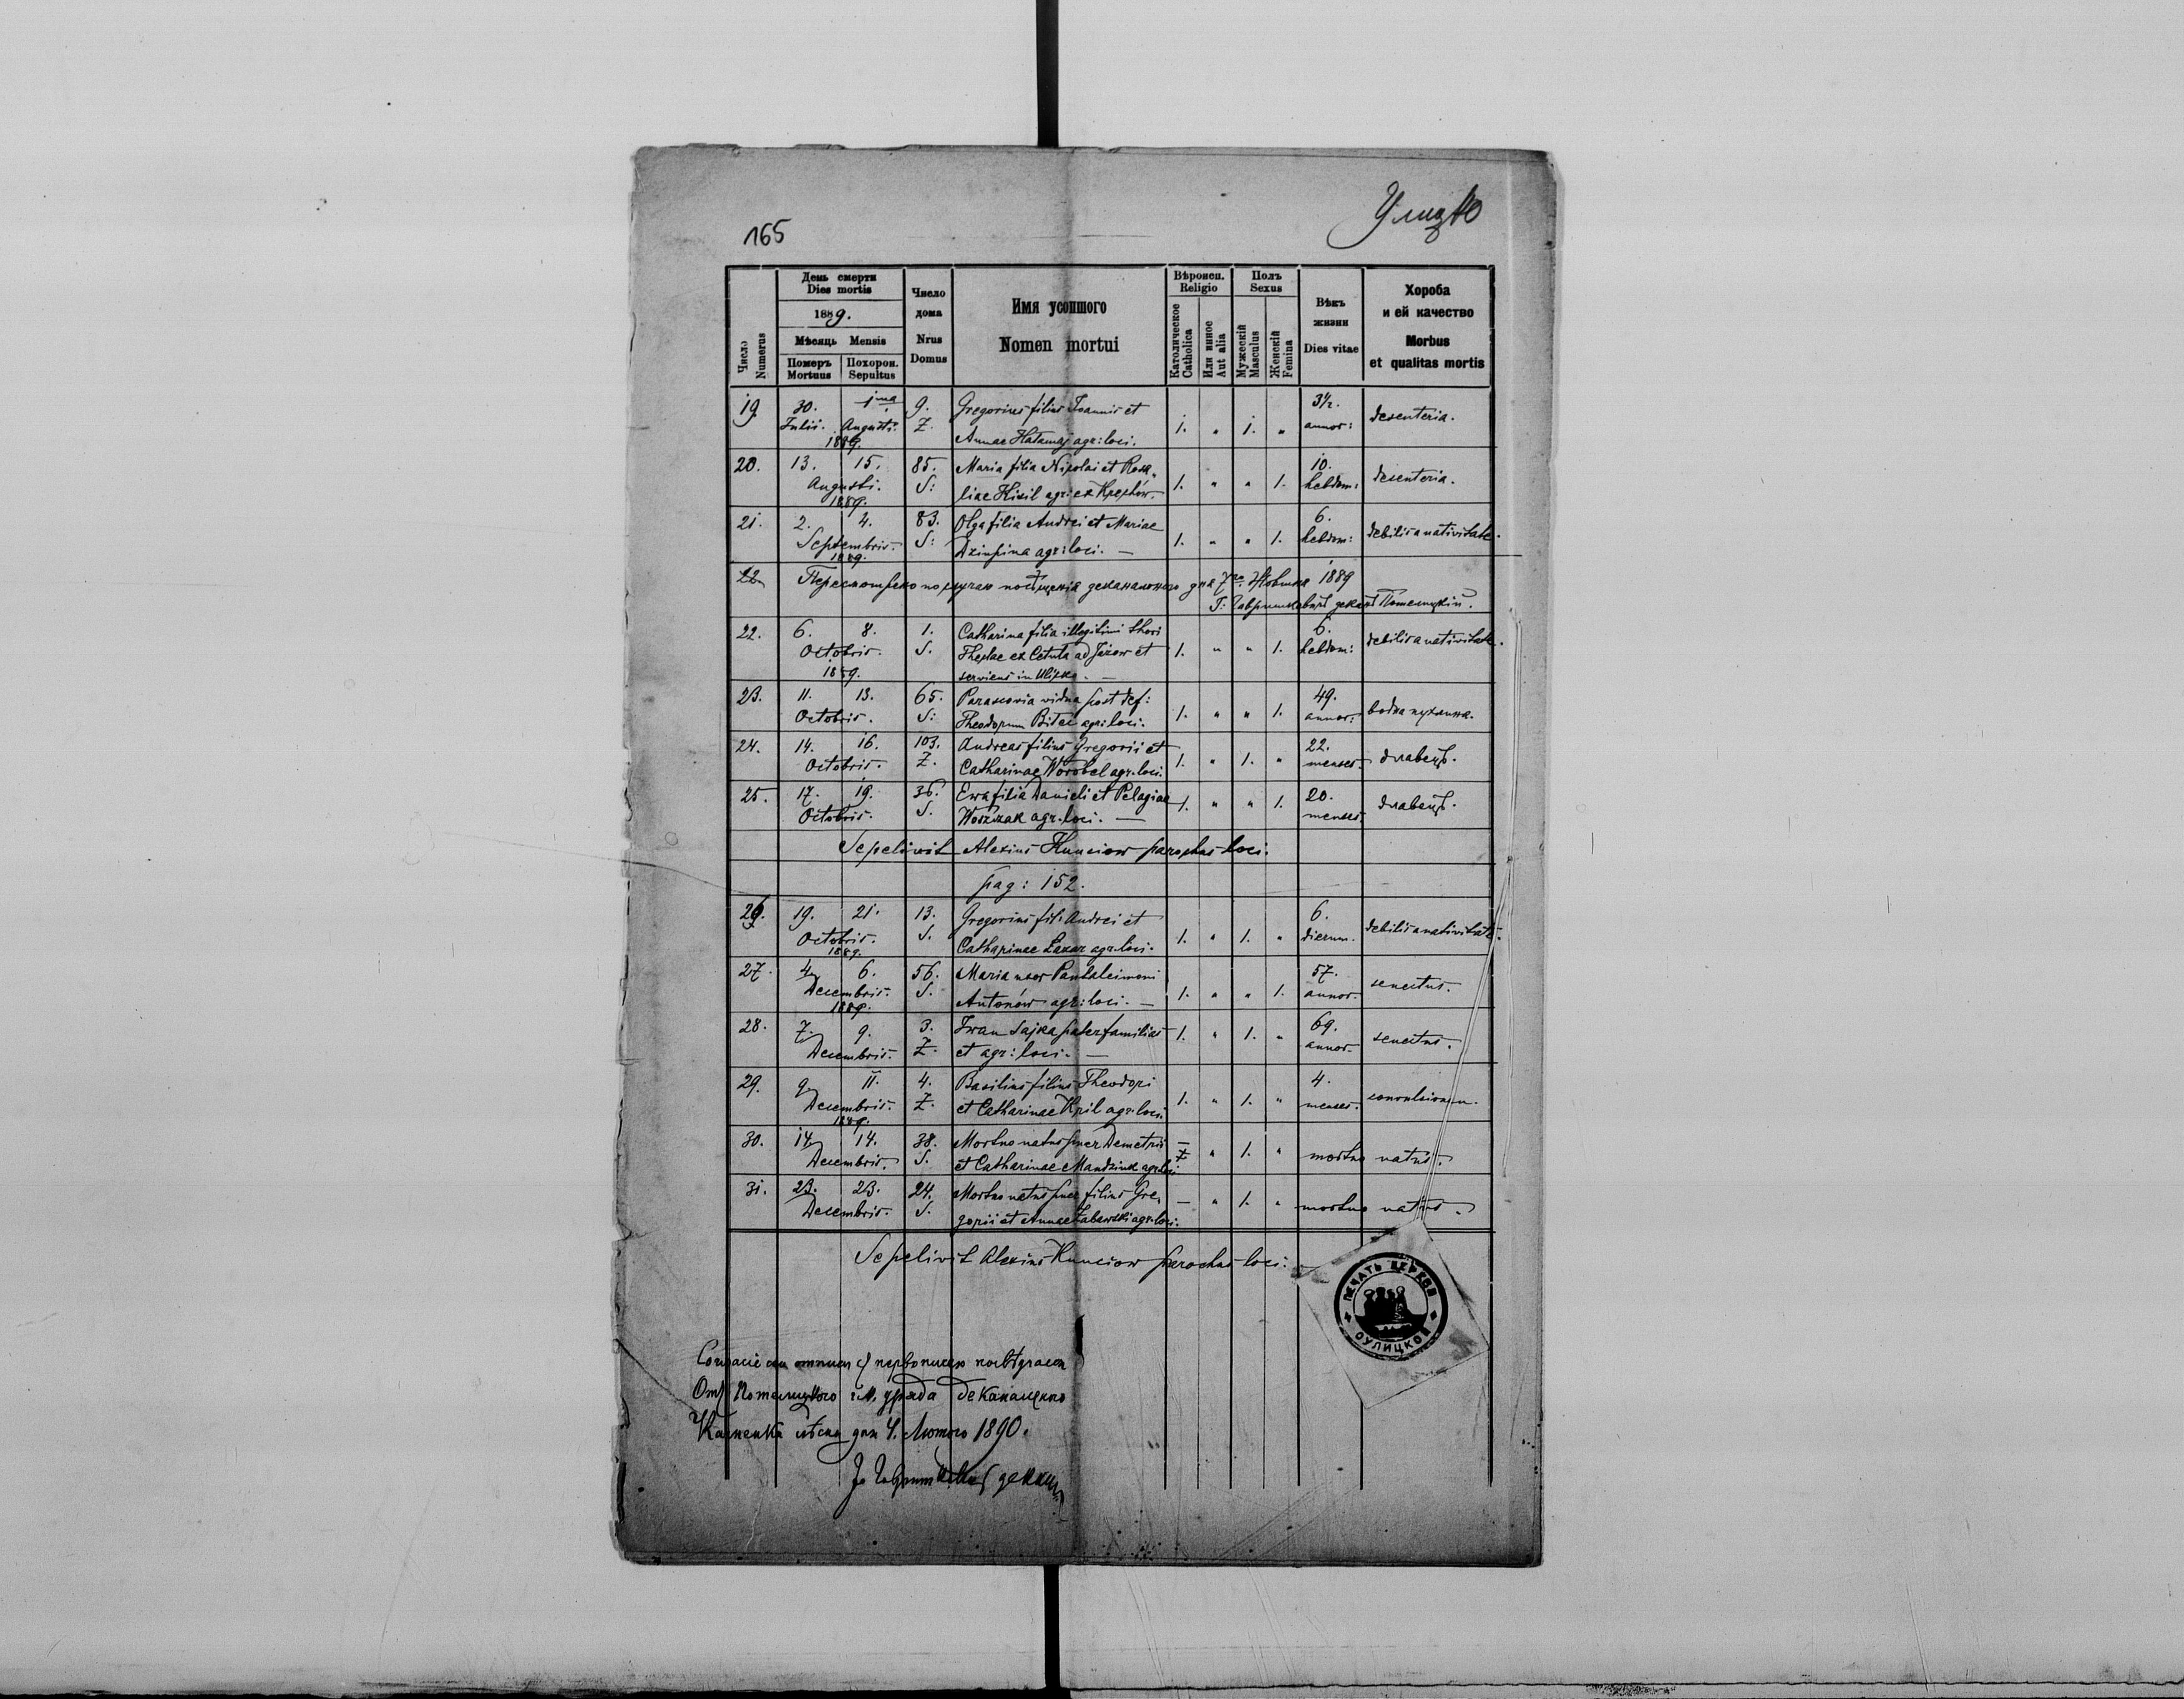 165
Улицко
День смерти
Dies mortis
1889.
Мѣсяць Mensis
Число
Numerus
Померъ
Mortuus
Похорон.
Sepultus
Число
дома
Nrus
Domus
Имя усопшого
Nomen mortui
Вѣроисп.
Religio
Католическое
Catholica
Или иное
Aut alia
Полъ
Sexus
Мужескій
Masculus
Женскій
Femina
Вѣкъ
жизни
Dies vitae
Хороба
и ей качество
Morbus
et qualitas mortis
19. 30. 1ma 9. Gregorius filius Joannis et 3½.
Julii. Augusti. Z. Annae Hałamaj agr: loci. 1. " 1. " annor: desenteria.
1889.
20. 13. 15. 85. Maria filia Nicolai et Rosa„ 10.
Augusti. S: liae Kisil agr: ex 1. " " 1. hebdom: desenteria.
1889.
21. 2. 4. 83. Olga filia Andrei et Mariae 6.
Septembris. S: agr: loci. — 1. " " 1. hebdom: debilis a nativitate.
1889.
1889
деканъ Потелицкій.
22. 6. 8. 1. Catharina filia illegitimi thori 6.
Octobris. S. Theclae ex Cetula ad Jazow et 1. " " 1. hebdom: debilis a nativitate.
1889. serviens in Ulicko. —
23. 11. 13. 65. Parascevia vidua post def: 49.
Octobris. S: Theodorum agr: loci. 1. " " 1. annor: водна пухлина.
24. 14. 16. 103. Andreas filius Gregorii et 22.
Octobris. Z. Catharinae Worobel agr. loci. 1. " 1. " menses. давецъ.
25. 17. 19. 36. Ewa filia Danieli et Pelagiae 1. " " 1. 20.
Octobris. S. Woszczak agr. loci. — menses. давецъ.
Sepelivit Alexius Kunciow parochus loci.
pag: 152.
26. 19. 21. 13. Gregorius fil: Andrei et 6.
Octobris. S. Catharinae Lazar agr. loci. 1. " 1. " dierum. debilis a nativitate.
1889.
27. 4. 6. 56. Maria uxor Pantaleimoni 57.
Decembris. S. Antonów agr: loci. — 1. " " 1. annor. senectus.
1889.
28. 7. 9. 3. Iwan Sajka pater familias 1. " 1. " 69.
Decembris. Z. et agr: loci. — annor. senectus.
29. 9. 11. 4. Basilius filius Theodori 4.
Decembris. Z. et Catharinae Kril agr. loci. 1. " 1. " menses.
1889.
30. 14. 14. 38. Mortuo natus puer Demetrii —
Decembris. S. et Catharinae Mandziuk agr. loci " 1. " mortuo natus.
31. 23. 23. 24. Mortuo natus puer filius Gre„ — " 1. "
Decembris. S. gorii et Annae Zabawski agr. loci. mortuo natus.
Sepelivit Alexius Kunciow parochus loci.
ПЕЧАТЬ ЦЕРКВИ
ОУЛИЦКОЙ
Согласіе сеи отписи съ первописею посвѣдчаеся
Отъ Потелицкого уряда деканального
Каменка дня 4. Лютого 1890.
деканъ